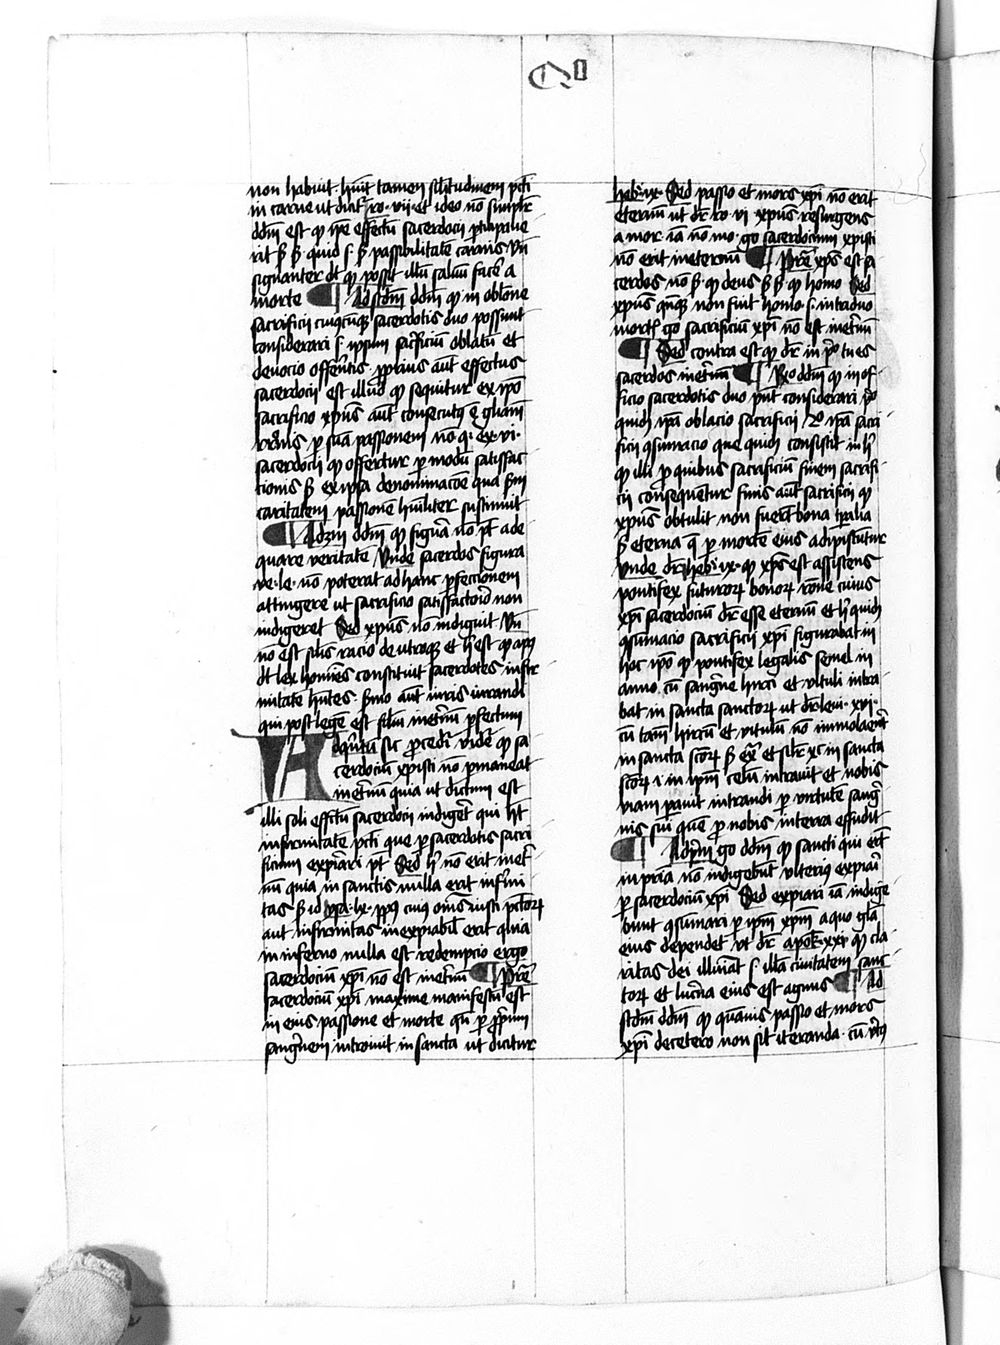 Q I
non habuit habuit tamen similitudinem peccati
in carne ut dicitur ro· viii· et ideo non simpliciter
dicendum est quod ipse effectum sacerdocii participaverit
signanter dicit qui possit illum salvum facere a
morte ¶ Ad secundum dicendum quod in oblacione
sacrificii cuiuscumque sacerdotis duo possunt
considerari s· ipsum sacrificium oblatum et
devocio offerentis proprius autem effectus
sacerdocii est illud quod sequitur ex ipso
sacrificio xpus autem consecutus est gloriam
per suam passionem non quasi ex vi
sacerdocii quod offertur per modum satisfac
tionis sed ex ipsa devocione qua secundum
caritatem passionem humiliter sustinuit
¶ Ad 3m dicendum quod figura non potest ade
quare veritatem Unde sacerdos figura
ve· le· non poterat ad hanc perfeccionem
attingere ut sacrificio satisfactorio non
indigeret Sed xpus non indiguit Unde
non est similis racio de utroque et hoc est quod apostolus
dicit lex homines constituit sacerdotes infir
mitatem habentes sermo autem iuris iurandi
qui post legem est filium in eternum perfectum
Ad quintum sic proceditur videtur quod sa
cerdocium xpisti non permaneat
in eternum quia ut dictum est
illi soli effectu sacerdocii indigent qui habent
infirmitatem peccati que per sacerdotis sacri
ficium expiari potest Sed hoc non erit in eter
num quia in sanctis nulla erit infirmi
tas
aut infirmitas inexpiabilis erit quia
in inferno nulla est redempcio ergo
sacerdocium xpi non est in eternum ¶ Preterea
sacerdocium xpi maxime manifestum est
in eius passione et morte quando per proprium
sanguinem introivit in sancta ut dicitur
heb· ix· Sed passio et mors xpi non erit
eterna ut dicitur ro vi xpus resurgens
a mor· iam non mo· ergo sacerdocium xpisti
non erit in eternum ¶ Preterea xps est sa
cerdos non secundum quod deus sed secundum quod homo Sed
xpus quandoque non fuit homo s· in triduo
mortis ergo sacrificium xpi non est in eternum
¶ Sed contra est quod dicitur in ps tu es
sacerdos in eternum ¶ Respondeo dicendum quod in of
ficio sacerdotis duo possunt considerari primo
quidem ipsa oblacio sacrificii 2o ipsa sacri
ficii consumacio que quidem consistit in hoc
quod illi pro quibus sacrificium finem sacrifi
cii consequentur finis autem sacrificii quod
xpus obtulit non fuerunt bona temporalia
sed eterna que per mortem eius adipiscuntur
Unde dicitur heb· ix· quod xps est assistens
pontifex futurorum bonorum racione cuius
xpi sacerdocium dicitur esse eternum et hec quidem
consumacio sacrificii xpi figurabatur in
hoc ipso quod pontifex legalis semel in
anno cum sanguine hirci et vituli intra
bat in sancta sanctorum ut dicitur levi· xvi·
cum tamen hircum et vitulum non immolaret
in sancta sanctorum sed extra et similiter xc in sancta
sanctorum i· in ipsum celum intravit et nobis
viam paravit intrandi per virtutem sangui
nis sui quem pro nobis in terra effudit
¶ Ad primum ergo dicendum quod sancti qui erunt
in patria non indigebunt ulterius expiari
per sacerdocium xpi Sed expiati iam indige
bunt consumari per ipsum xpm a quo gloria
eius dependet ut dicitur apok· xxi· quod cla
ritas dei illuminat s· illam civitatem sanc
torum et lucerna eius est agnus ¶ Ad
secundum dicendum quod quamvis passio et mors
xpi de cetero non sit iteranda· cum virtus